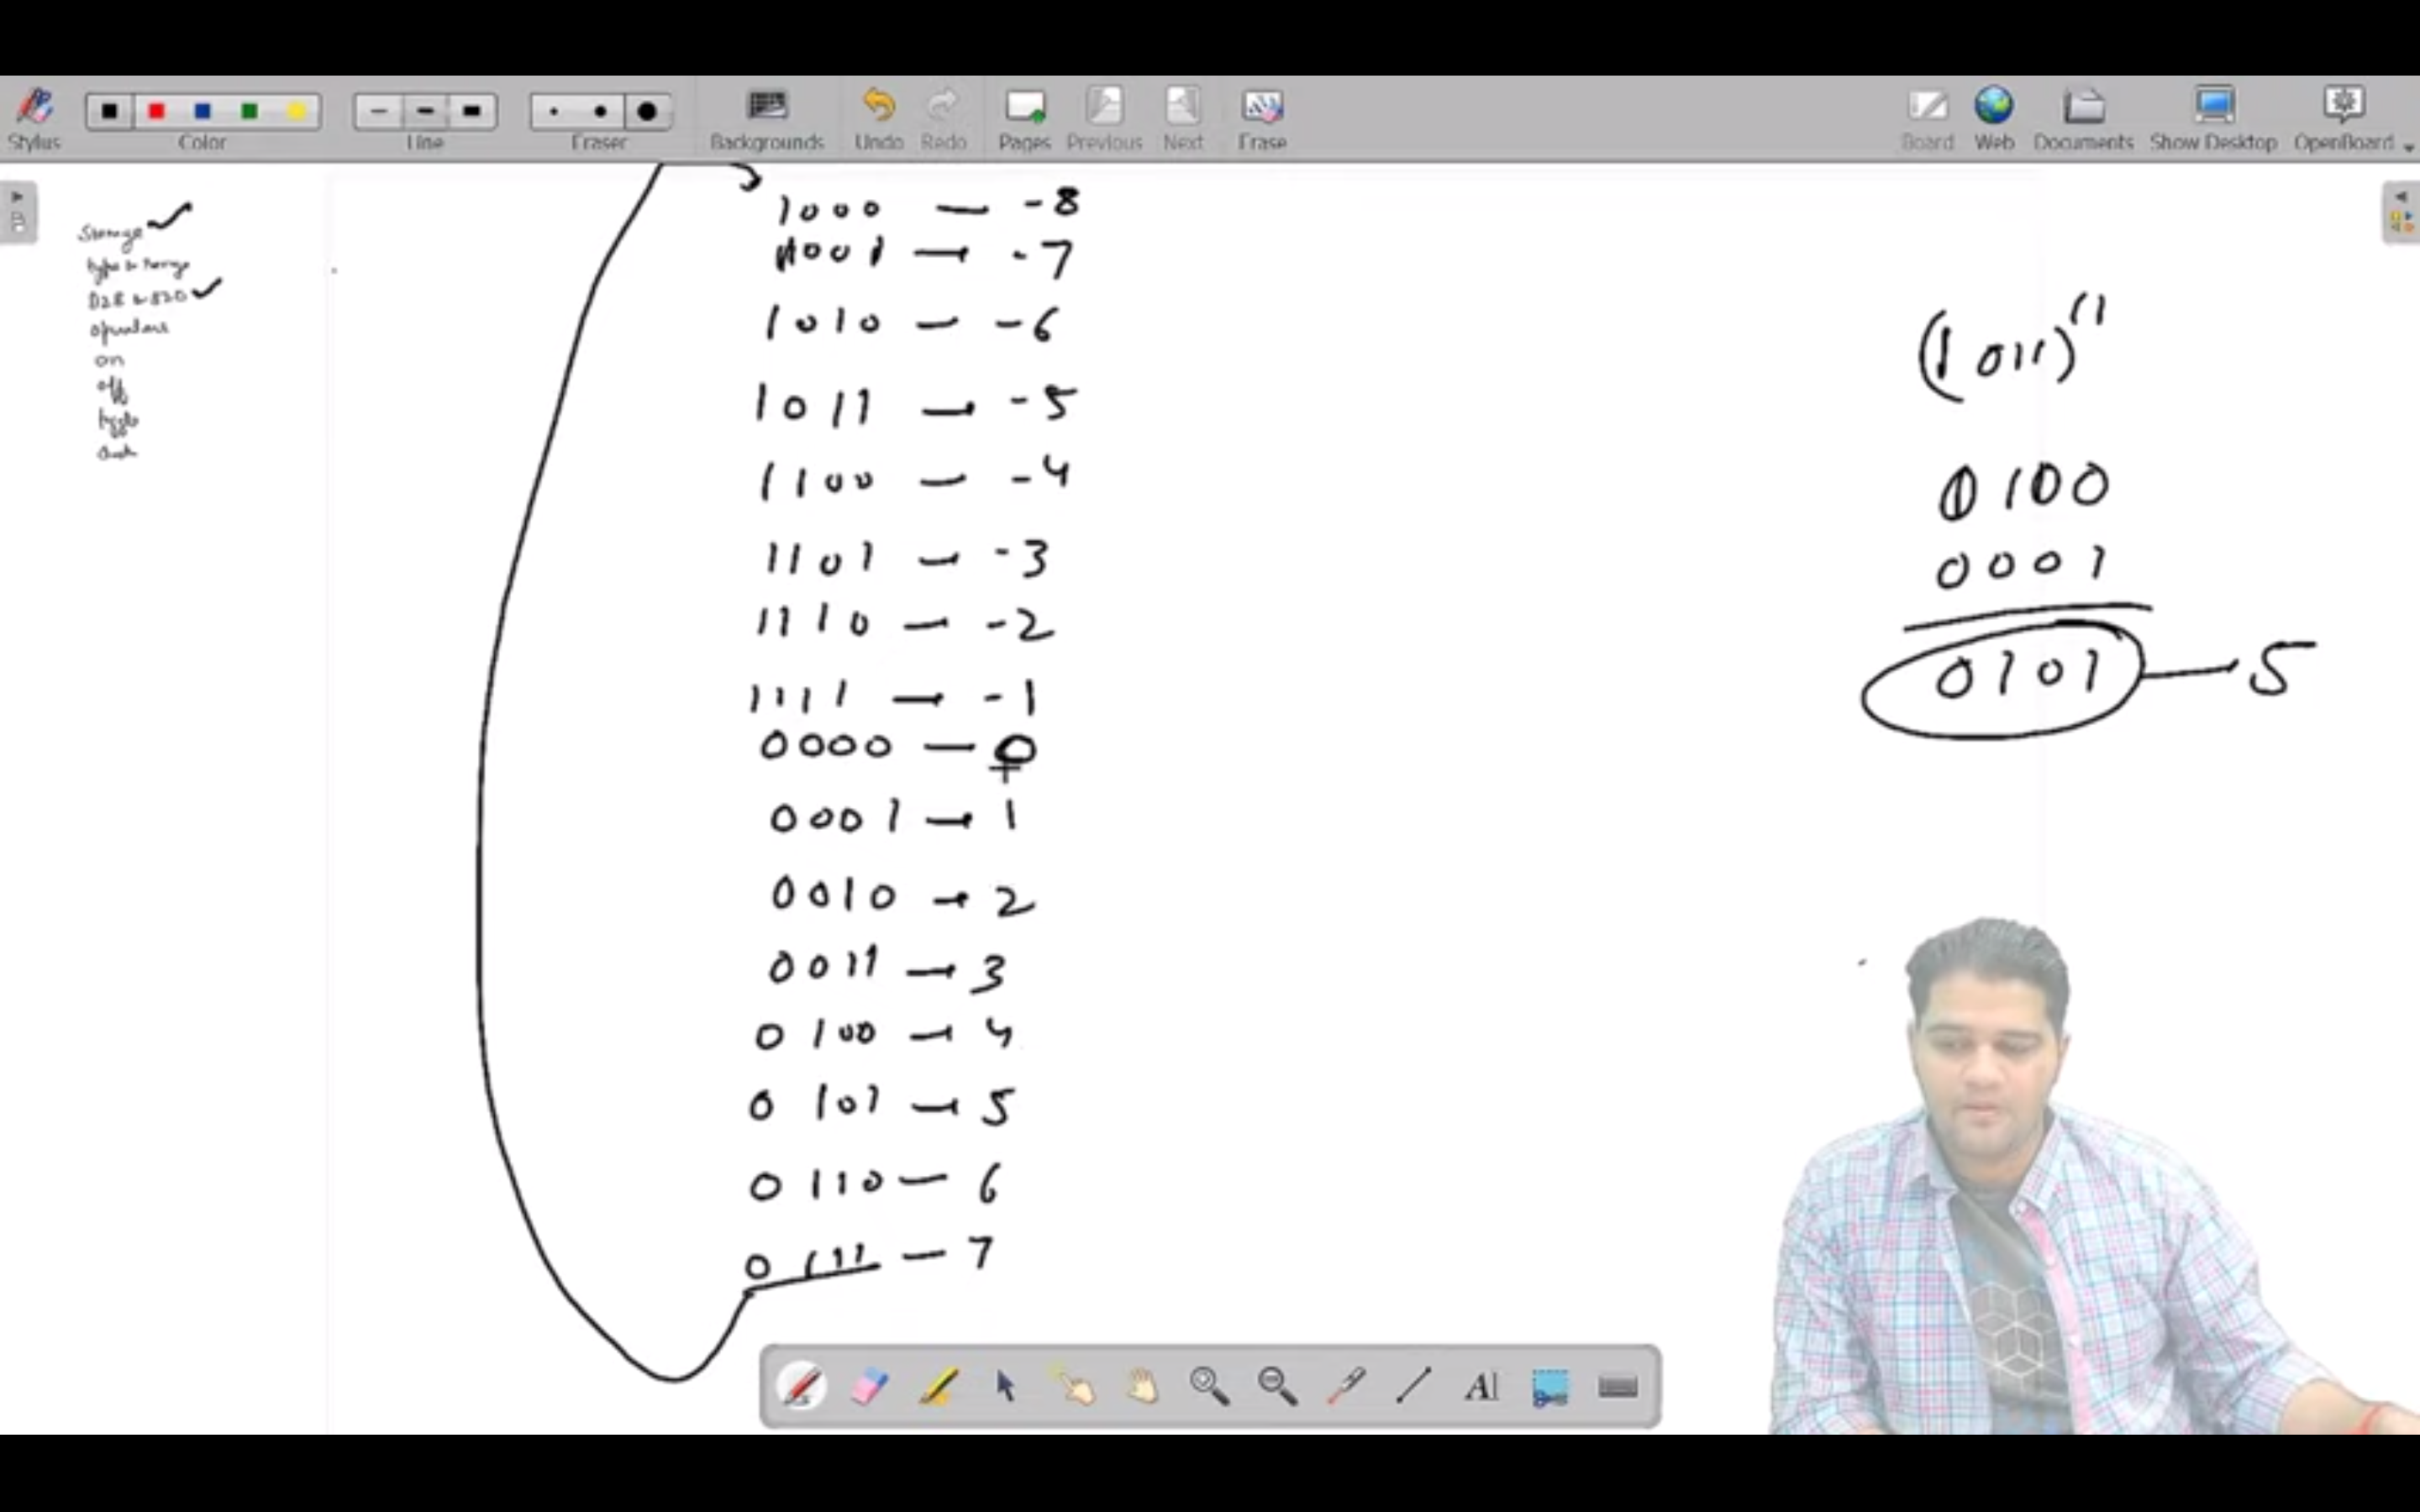 Stylus
Color
Line
Eraser
Backgrounds
Undo
Redo
Pages
Previous
Next
Erase
Board
Web
Documents
Show Desktop
OpenBoard
B
Storage
type & range
D2B & B2D
operators
on
off
toggle
1000 — -8
1001 — -7
1010 — -6
1011 — -5
1100 — -4
1101 — -3
1110 — -2
1111 — -1
0000 — 0
0001 — 1
0010 — 2
0011 — 3
0100 — 4
0101 — 5
0110 — 6
0111 — 7
(1011)''
0100
0001
0101 — 5
AI